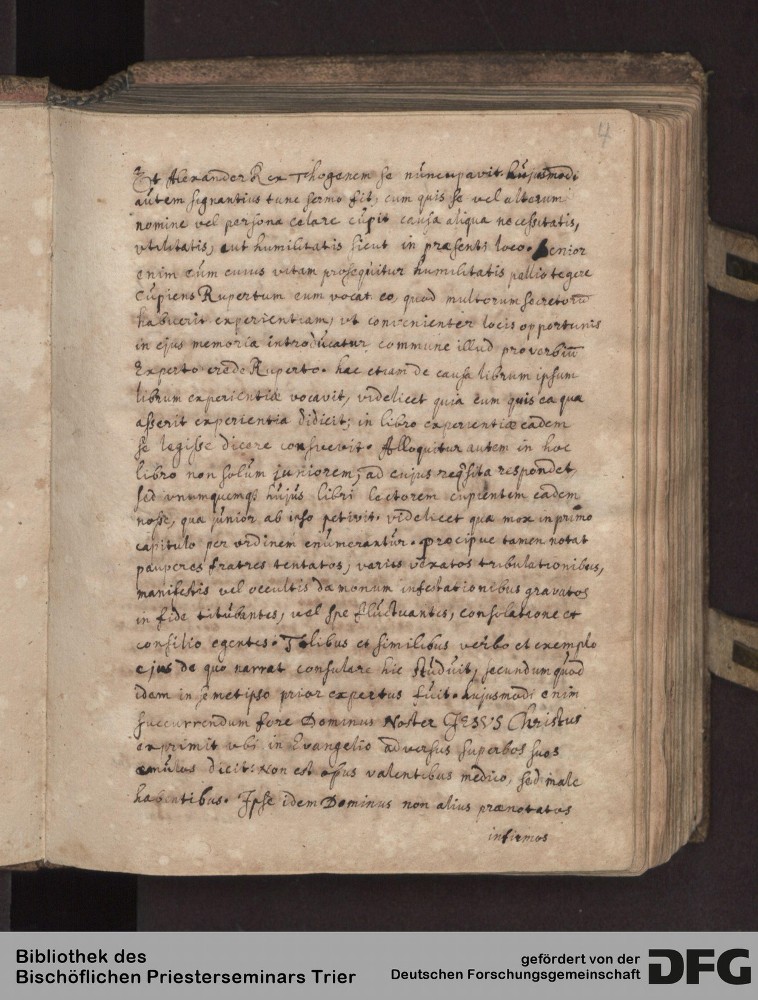 4
Et Alexander Rex Thogenem se nuncupavit. hujusmodi
autem signantius tunc sermo fit, cum quis se vel alterum
nomine vel persona celare cupit causa aliqua necessitatis,
vtilitatis, aut humilitatis sicut in præsenti loco. Senior
enim eum cuius vitam prosequitur humilitatis pallio tegere
cupiens Rupertum eum vocat eo, quod multorum secretorū
habuerit experientiam, vt convenienter locis opportunis
in ejus memoria introducatur commune illud proverbiū
Experto crede Ruperto. hac etiam de causa librum ipsum
librum experientiæ vocavit, videlicet quia cum quis ea quæ
asserit experientia didicit; in libro experientiæ eadem
se legisse dicere consuevit. Alloquitur autem in hoc
libro non solùm juniorem, ad cujus reqsita respondet,
sed vnumquemq; hujus libri lectorem cupientem eadem
nosse, quæ junior ab ipso petivit. videlicet quæ mox in primo
capitulo per ordinem enumerantur. præcipue tamen notat
pauperes fratres tentatos, variis vexatos tribulationibus,
manifestis vel occultis dæmonum infestationibus gravatos
in fide titubantes, vel spe fluctuantes, consolatione et
consilio egentes. Talibus et similibus verbo et exemplo
ejus de quo narrat consulere hic studuit, secundum quod
idem in semetipso prior expertus fuit. hujusmodi enim
succurrendum fore Dominus Noster JESVS Christus
exprimit vbi in Evangelio adversus superbos suos
æmulos dicit: Non est opus valentibus medico, sed male
habentibus. Ipse idem Dominus non alius prænotatos
infirmos
Bibliothek des
Bischöflichen Priesterseminars Trier
gefördert von der
Deutschen Forschungsgemeinschaft
DFG